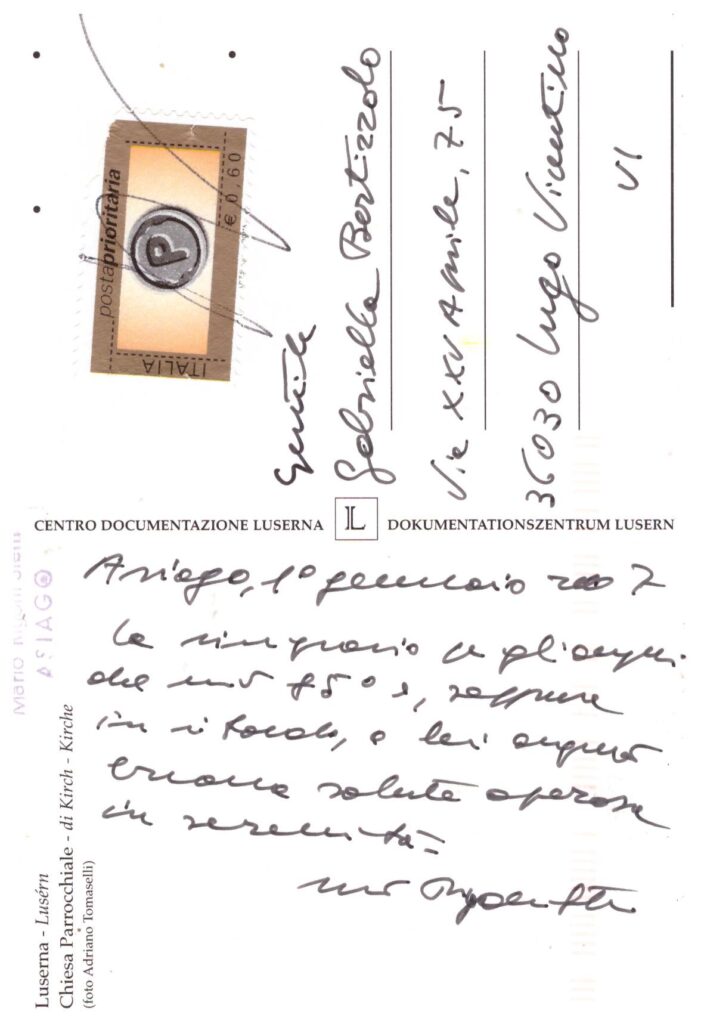 Luserna - Lusérn
Chiesa Parrocchiale - di Kirch - Kirche
(foto Adriano Tomaselli)
Mario
ASIAGO
Asiago, 1° gennaio 2007
La ringrazio per gli auguri
del mio 85° e, seppure
in ritardo, a lei auguro
buona salute operosa
in serenità=
CENTRO DOCUMENTAZIONE LUSERNA
L
DOKUMENTATIONSZENTRUM LUSERN
ITALIA
postaprioritaria
P
€ 0,60
Gentile
Gabriella Bertizzolo
Via XXV Aprile, 75
36030 Lugo Vicentino
VI